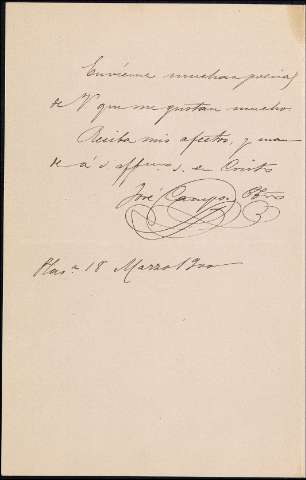 Envíeme muchas poesias
de V que me gustan mucho
Reciba mis afectos, y man-
de á s. affmo. s. en Cristo
José Campos
18 Marzo 1900